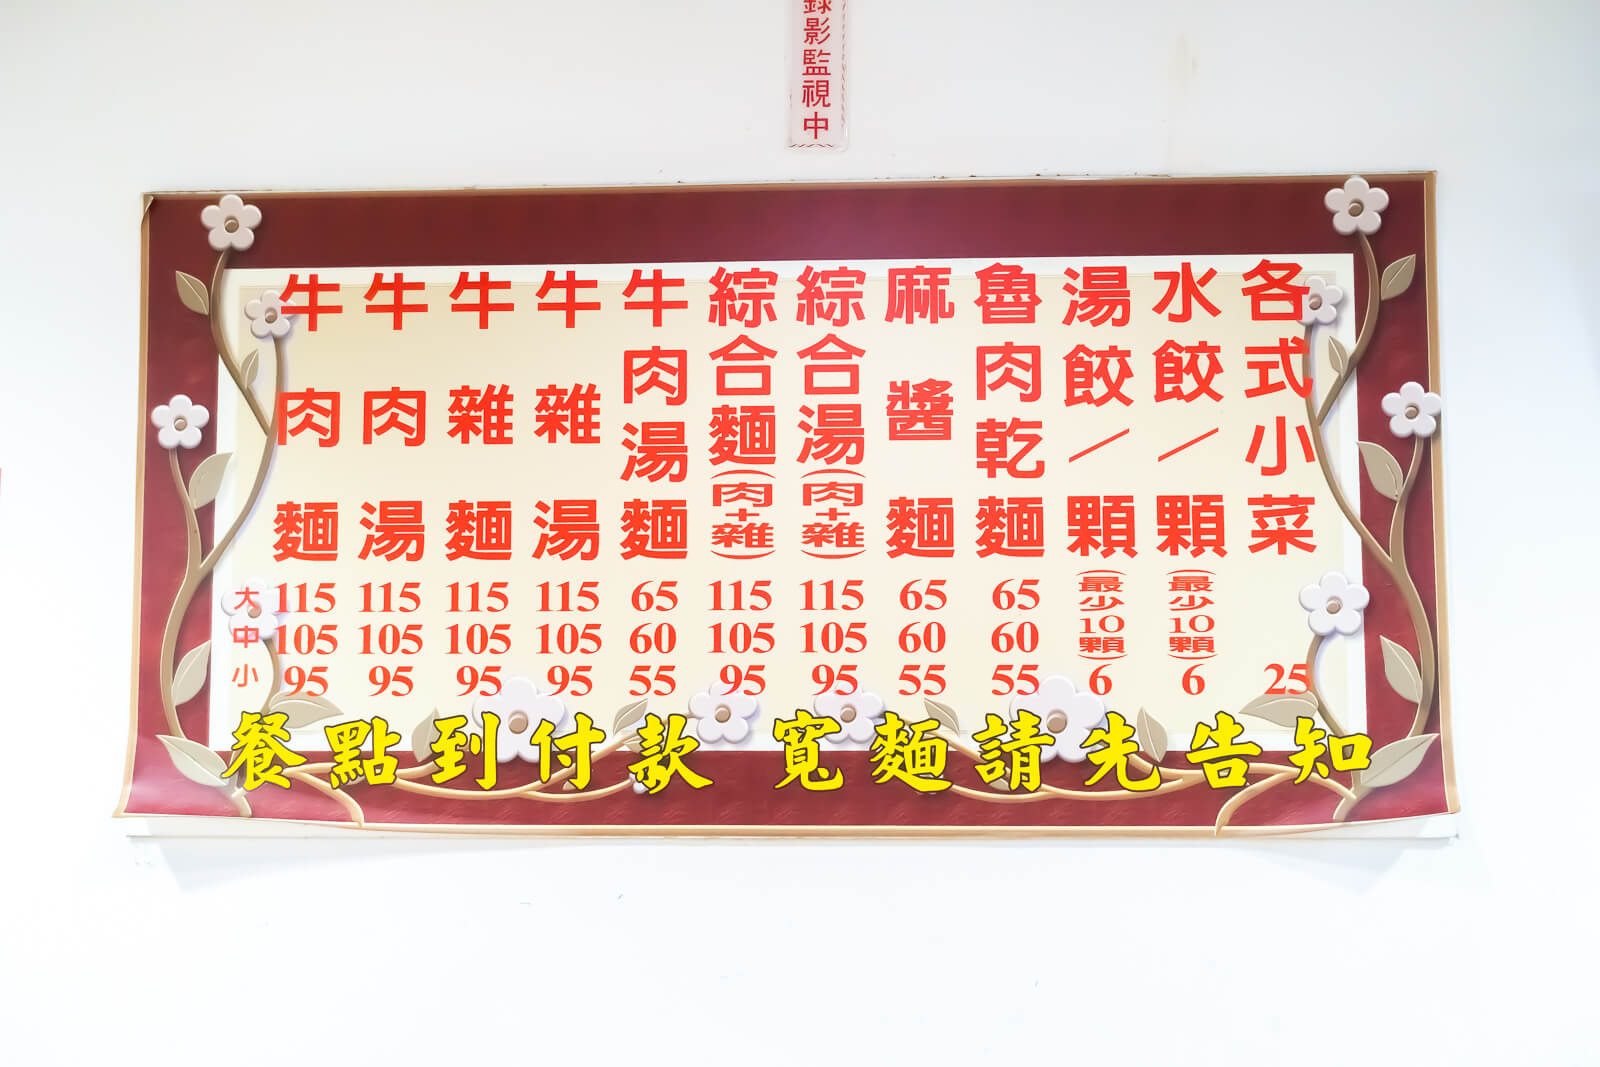 錄影監視中
牛肉麵
牛肉湯
牛雜麵
牛雜湯
牛肉湯麵
綜合麵(肉+雜)
綜合湯(肉+雜)
麻醬麵
魯肉乾麵
湯餃/顆(最少10顆)
水餃/顆(最少10顆)
各式小菜
大 115 115 115 115 65 115 115 65 65
中 105 105 105 105 60 105 105 60 60
小 95 95 95 95 55 95 95 55 55 6 6 25
餐點到付款 寬麵請先告知